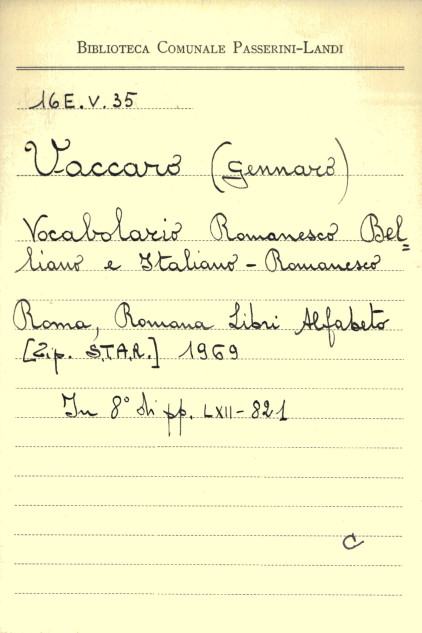 BIBLIOTECA COMUNALE PASSERINI-LANDI
16E.V.35
Vaccaro (Gennaro)
Vocabolario Romanesco Bel=
liano e Italiano - Romanesco
Roma, Romana Libri Alfabeto
[Tip. S.T.A.R.] 1969
In 8° di pp. LXII-821
C